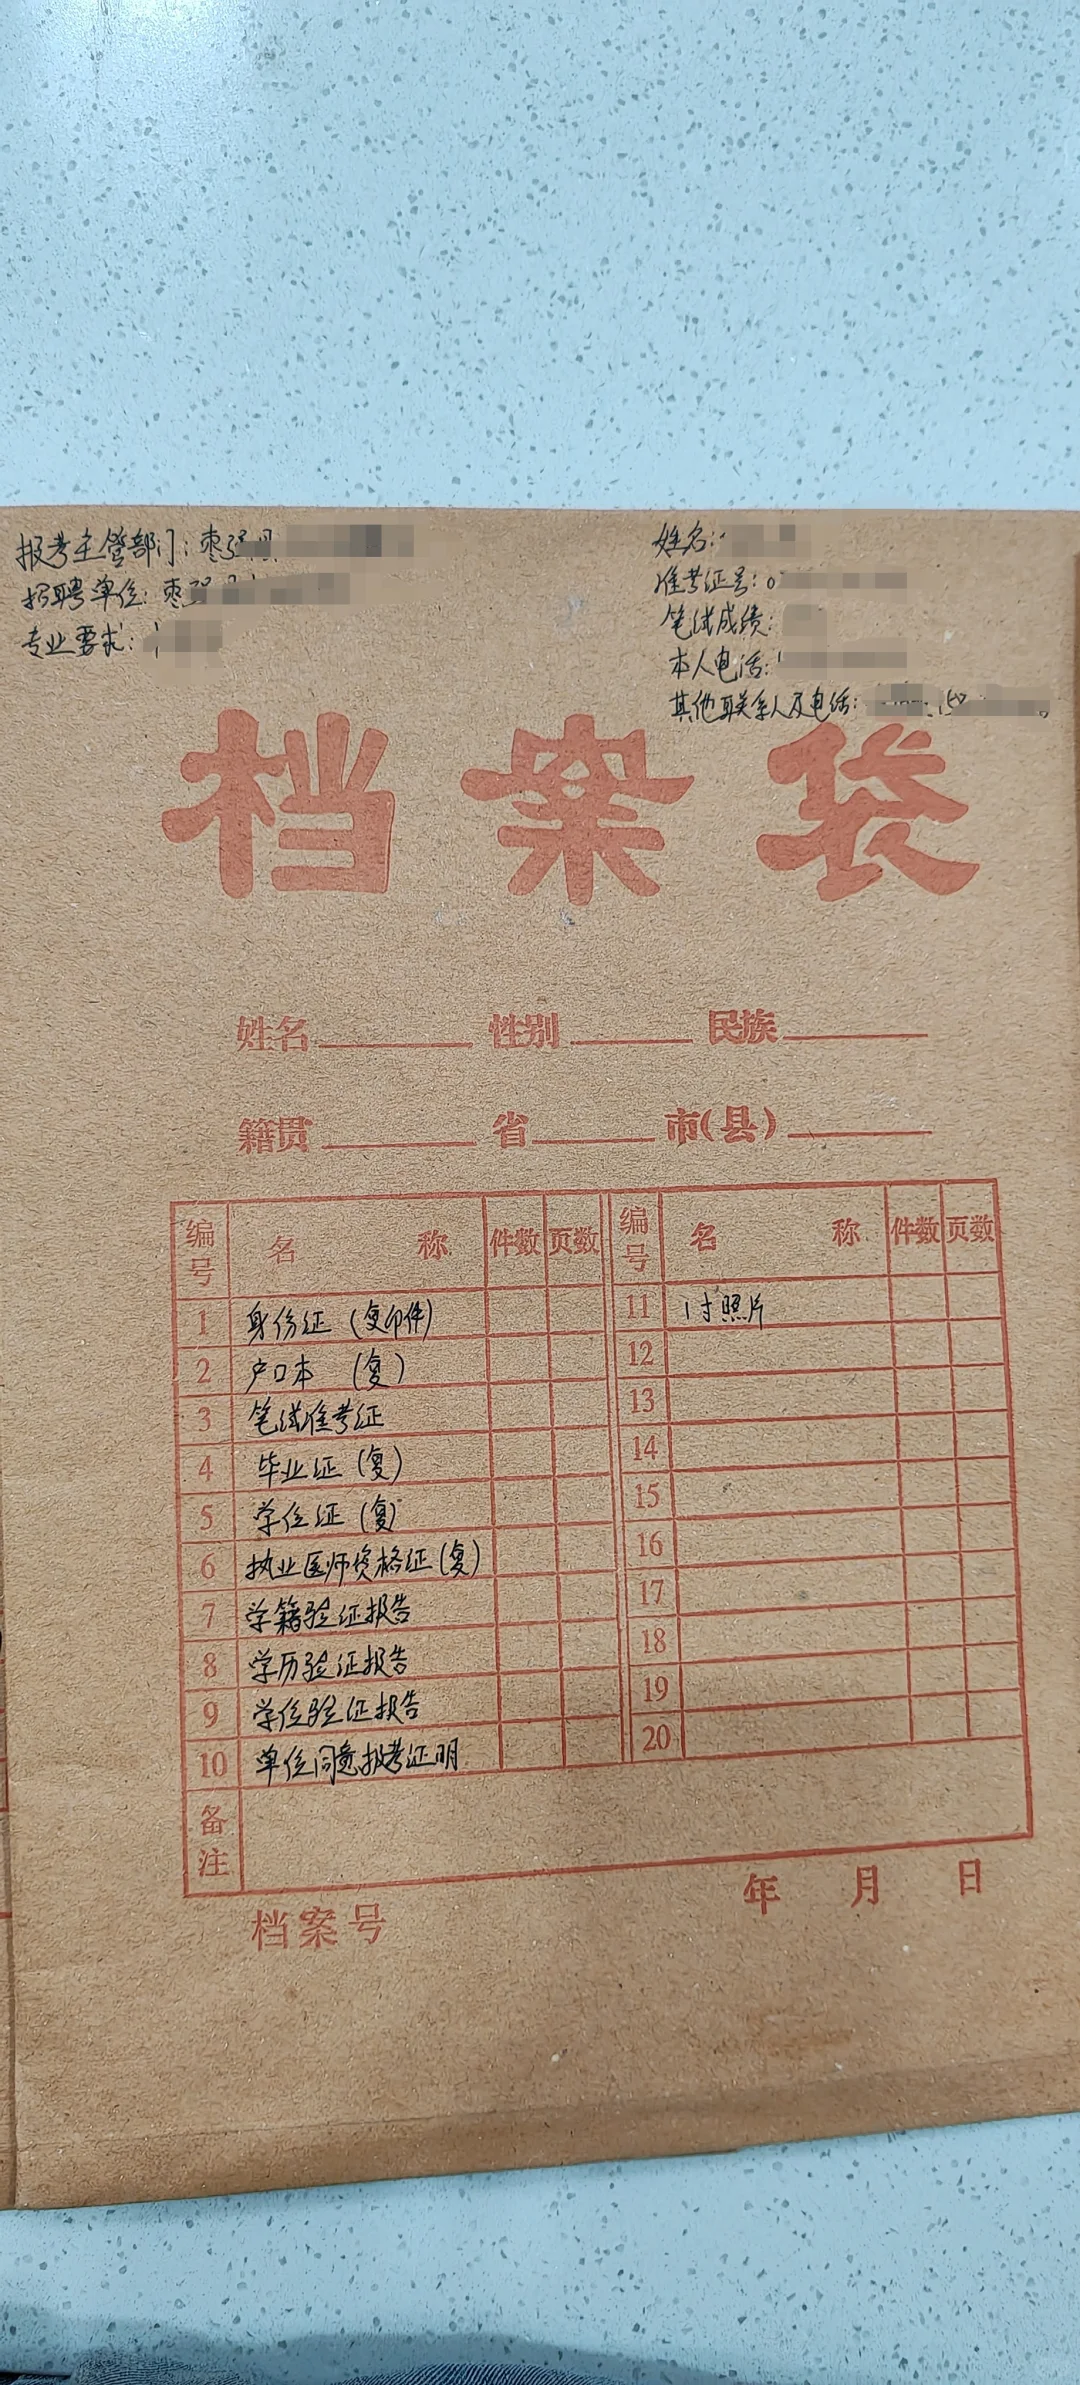 报考主管部门：枣强县
招聘单位：枣强
专业要求：
姓名：
准考证号：0
笔试成绩：
本人电话：1
其他联系人及电话： 15
档案袋
姓名 性别 民族
籍贯 省 市(县)
编号 名称 件数 页数 编号 名称 件数 页数
1 身份证（复印件） 11 1寸照片
2 户口本（复） 12
3 笔试准考证 13
4 毕业证（复） 14
5 学位证（复） 15
6 执业医师资格证（复） 16
7 学籍验证报告 17
8 学历验证报告 18
9 学位验证报告 19
10 单位同意报考证明 20
备注
年 月 日
档案号